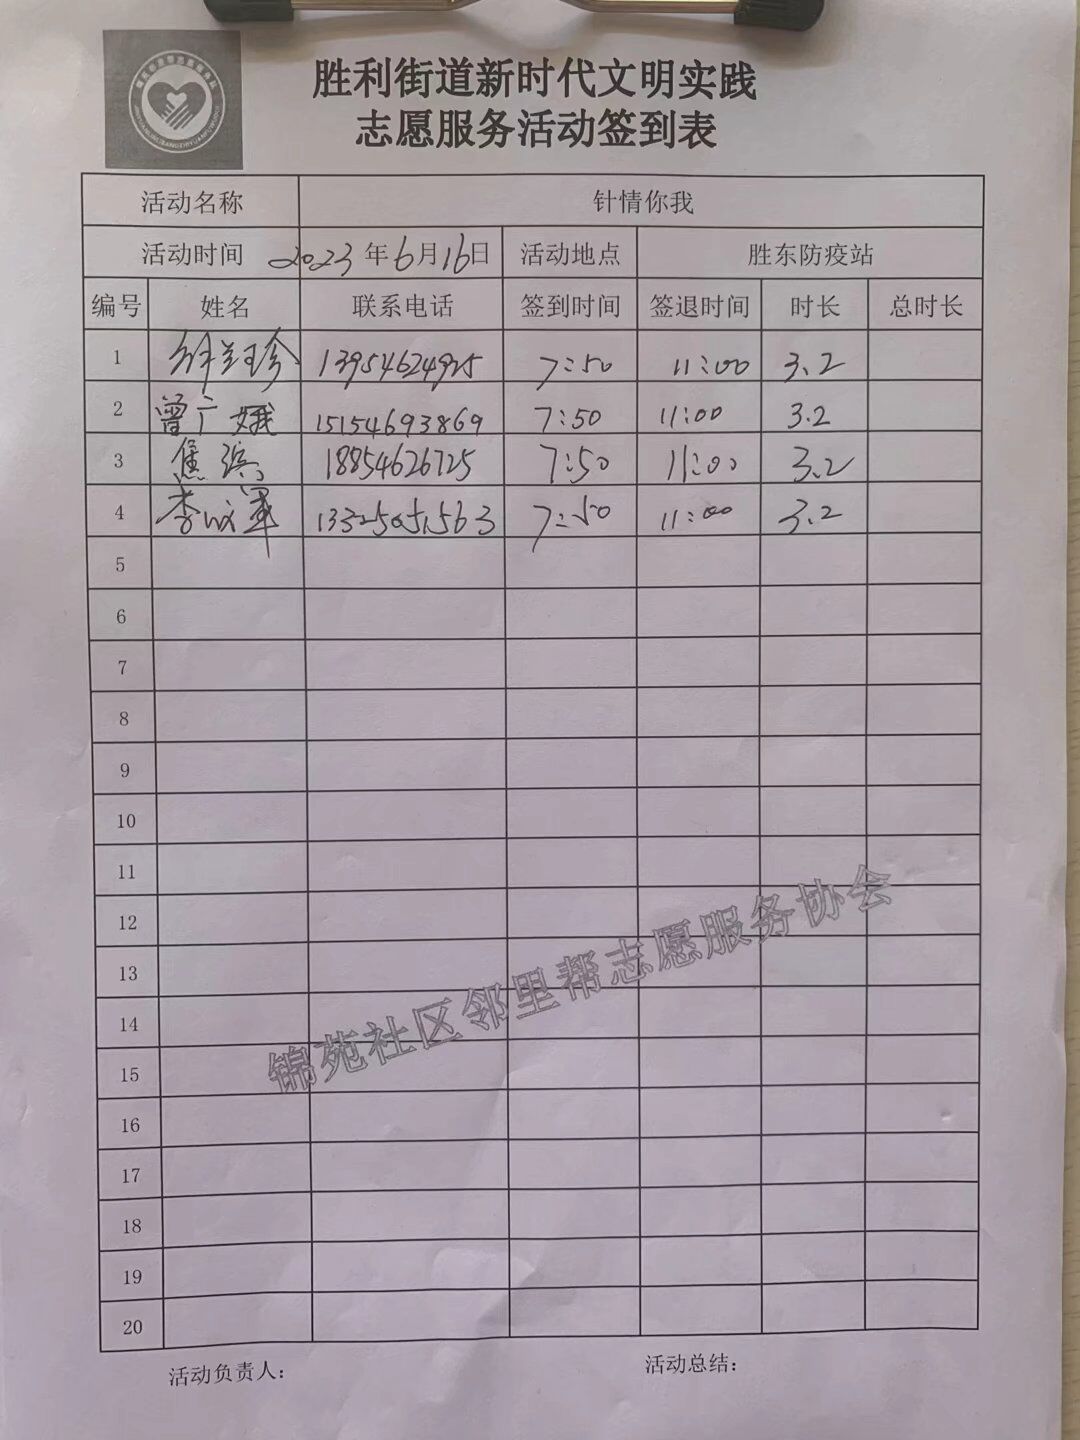 胜利街道新时代文明实践
志愿服务活动签到表
活动名称 针情你我
活动时间 2023年6月16日 活动地点 胜东防疫站
编号 姓名 联系电话 签到时间 签退时间 时长 总时长
1 13954624925 7:50 11:00 3.2
2 曾广娥 15154693869 7:50 11:00 3.2
3 焦 18854626725 7:50 11:00 3.2
4 李 军 13325051563 7:50 11:00 3.2
5
6
7
8
9
10
11
12
13
14
15
16
17
18
19
20
锦苑社区邻里帮志愿服务协会
活动负责人： 活动总结：